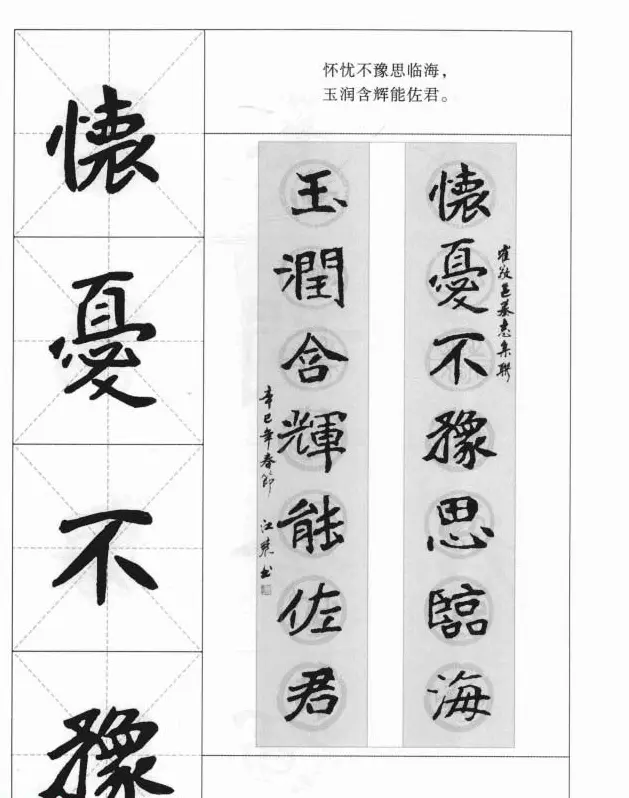 怀忧不豫思临海，
玉润含辉能佐君。
懷
憂
不
豫
懷憂不豫思臨海
崔敬邕墓志集聯
玉潤含輝能佐君
辛巳年春節 江